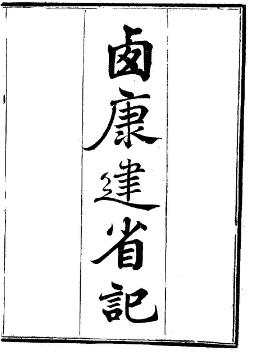 西康建省記